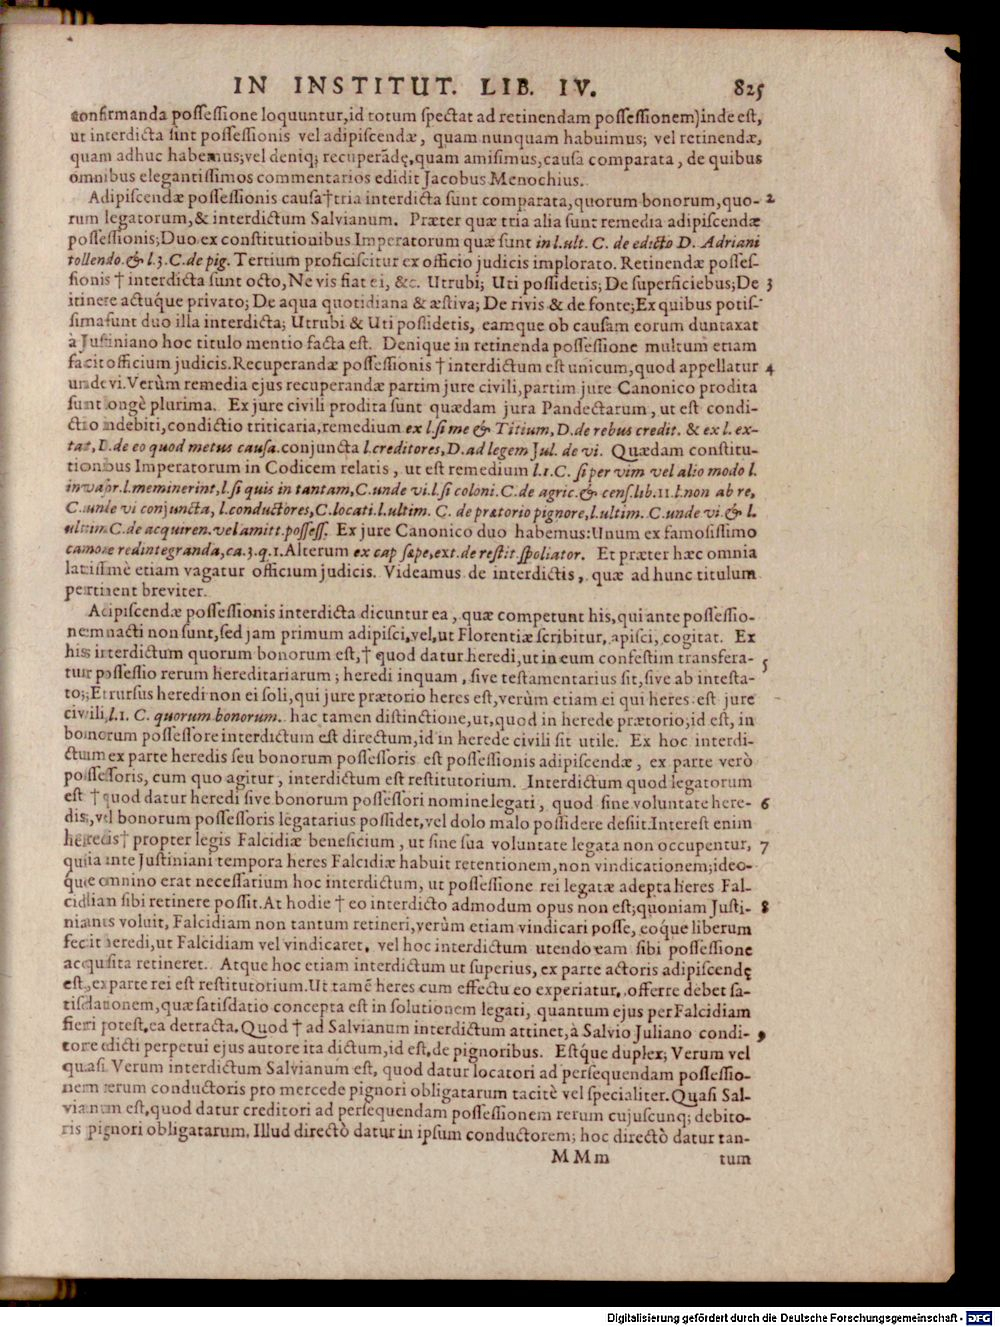 IN INSTITUT. LIB. IV. 825
confirmanda possessione loquuntur, id totum spectat ad retinendam possessionem) inde est,
ut interdicta sint possessionis vel adipiscendæ, quam nunquam habuimus; vel retinendæ,
quam adhuc habemus; vel deniq; recuperãdę, quam amisimus, causa comparata, de quibus
omnibus elegantissimos commentarios edidit Jacobus Menochius.
Adipiscendæ possessionis causa † tria interdicta sunt comparata, quorum bonorum, quo- 2
rum legatorum, & interdictum Salvianum. Præter quæ tria alia sunt remedia adipiscendæ
possessionis; Duo ex constitutionibus Imperatorum quæ sunt in l. ult. C. de edicto D. Adriani
tollendo. & l. 3. C. de pig. Tertium proficiscitur ex officio judicis implorato. Retinendæ posses-
sionis † interdicta sunt octo, Ne vis fiat ei, &c. Utrubi; Uti possidetis; De superficiebus; De 3
itinere actuque privato; De aqua quotidiana & æstiva; De rivis & de fonte; Ex quibus potis-
sima sunt duo illa interdicta; Utrubi & Uti possidetis, eamque ob causam eorum duntaxat
à Justiniano hoc titulo mentio facta est. Denique in retinenda possessione multum etiam
facit officium judicis. Recuperandæ possessionis † interdictum est unicum, quod appellatur 4
unde vi. Verùm remedia ejus recuperandæ partim jure civili, partim jure Canonico prodita
sunt longè plurima. Ex jure civili prodita sunt quædam jura Pandectarum, ut est condi-
ctio indebiti, condictio triticaria, remedium ex l. si me & Titium, D. de rebus credit. & ex l. ex-
tat, D. de eo quod metus causa. conjuncta l. creditores, D. ad legem Jul. de vi. Quædam constitu-
tionibus Imperatorum in Codicem relatis, ut est remedium l. 1. C. si per vim vel alio modo l.
invasor. l. meminerint, l. si quis in tantam, C. unde vi. l. si coloni. C. de agric. & cens. lib. 11. l. non ab re,
C. unde vi conjuncta, l. conductores, C. locati. l. ultim. C. de prætorio pignore, l. ultim. C. unde vi. & l.
ultim. C. de acquiren. vel amitt. possess. Ex jure Canonico duo habemus: Unum ex famosissimo
canone redintegranda, ca. 3. q. 1. Alterum ex cap sæpe, ext. de restit. spoliator. Et præter hæc omnia
latissimè etiam vagatur officium judicis. Videamus de interdictis, quæ ad hunc titulum
pertinent breviter.
Adipiscendæ possessionis interdicta dicuntur ea, quæ competunt his, qui ante possessio-
nem nacti non sunt, sed jam primum adipisci, vel, ut Florentiæ scribitur, apisci, cogitat. Ex
his interdictum quorum bonorum est, † quod datur heredi, ut in eum confestim transfera- 5
tur possessio rerum hereditariarum; heredi inquam, sive testamentarius sit, sive ab intesta-
to; Et rursus heredi non ei soli, qui jure prætorio heres est, verùm etiam ei qui heres est jure
civili, l. 1. C. quorum bonorum. hac tamen distinctione, ut, quod in herede prætorio; id est, in
bonorum possessore interdictum est directum, id in herede civili sit utile. Ex hoc interdi-
ctum ex parte heredis seu bonorum possessoris est possessionis adipiscendæ, ex parte verò
possessoris, cum quo agitur, interdictum est restitutorium. Interdictum quod legatorum
est † quod datur heredi sive bonorum possessori nomine legati, quod sine voluntate here- 6
dis, vel bonorum possessoris legatarius possidet, vel dolo malo possidere desiit. Interest enim
heredis † propter legis Falcidiæ beneficium, ut sine sua voluntate legata non occupentur, 7
quia ante Justiniani tempora heres Falcidiæ habuit retentionem, non vindicationem; ideo-
que omnino erat necessarium hoc interdictum, ut possessione rei legatæ adepta heres Fal-
cidian sibi retinere possit. At hodie † eo interdicto admodum opus non est; quoniam Justi- 8
nianus voluit, Falcidiam non tantum retineri, verùm etiam vindicari posse, eoque liberum
fecit heredi, ut Falcidiam vel vindicaret, vel hoc interdictum utendo eam sibi possessione
acquisita retineret. Atque hoc etiam interdictum ut superius, ex parte actoris adipiscendę
est, ex parte rei est restitutorium. Ut tamẽ heres cum effectu eo experiatur, offerre debet sa-
tisdationem, quæ satisdatio concepta est in solutionem legati, quantum ejus per Falcidiam
fieri potest, ea detracta. Quod † ad Salvianum interdictum attinet, à Salvio Juliano condi- 9
tore edicti perpetui ejus autore ita dictum, id est, de pignoribus. Estque duplex; Verum vel
quasi. Verum interdictum Salvianum est, quod datur locatori ad persequendam possessio-
nem rerum conductoris pro mercede pignori obligatarum tacitè vel specialiter. Quasi Sal-
vianum est, quod datur creditori ad persequendam possessionem rerum cujuscunq; debito-
ris pignori obligatarum. Illud directò datur in ipsum conductorem; hoc directò datur tan-
MMm tum
Digitalisierung gefördert durch die Deutsche Forschungsgemeinschaft - DFG